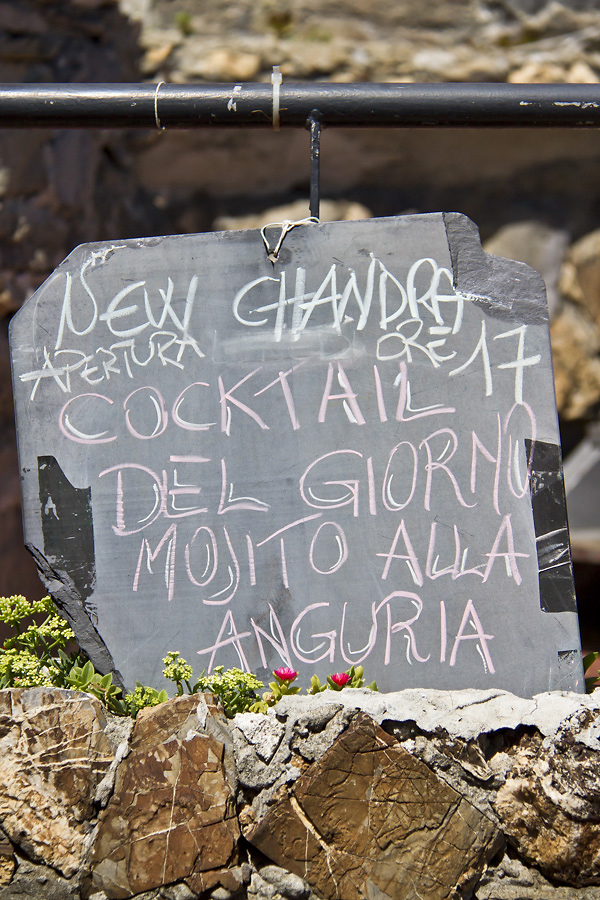 NEW CHANDRA
APERTURA ORE 17
COCKTAIL
DEL GIORNO
MOJITO ALLA
ANGURIA